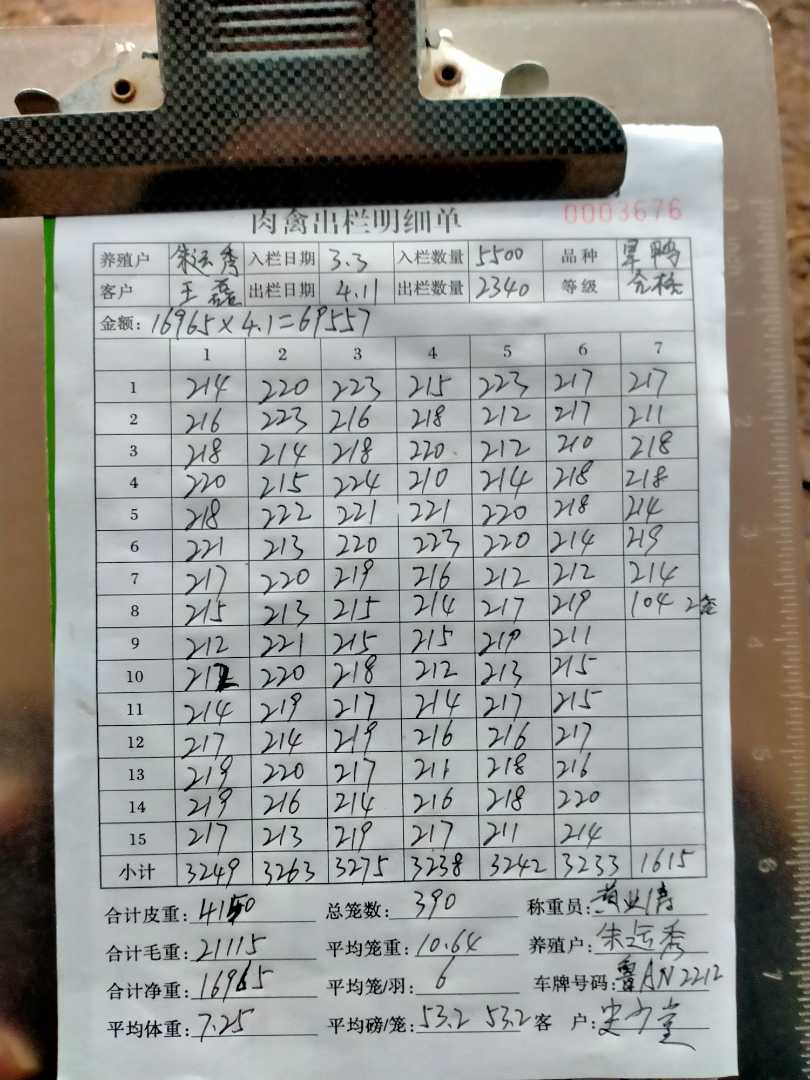 肉禽出栏明细单 0003676
养殖户 朱运秀 入栏日期 3.3 入栏数量 5500 品种 旱鸭
客户 王磊 出栏日期 4.11 出栏数量 2340 等级 合格
金额: 16965×4.1=69557
1 2 3 4 5 6 7
1 214 220 223 215 223 217 217
2 216 223 216 218 212 217 211
3 218 214 218 220 212 210 218
4 220 215 224 210 214 218 218
5 218 222 221 221 220 218 214
6 221 213 220 223 220 214 219
7 217 220 219 216 212 212 214
8 215 213 215 214 217 219 104 2笼
9 212 221 215 215 219 211
10 212 220 218 212 213 215
11 214 219 217 214 217 215
12 217 214 219 216 216 217
13 219 220 217 211 218 216
14 219 216 214 216 218 220
15 217 213 219 217 211 214
小计 3249 3263 3275 3238 3242 3233 1615
合计皮重: 4150 总笼数: 390 称重员:
合计毛重: 21115 平均笼重: 10.64 养殖户: 朱运秀
合计净重: 16965 平均笼/羽: 6 车牌号码: 鲁AN2212
平均体重: 7.25 平均磅/笼: 53.2 53.2 客 户: